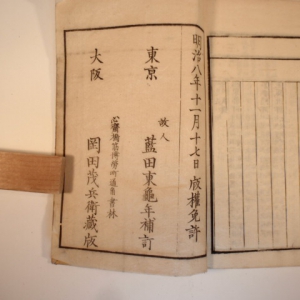 明治八年十一月十七日 版權免許
東京 故人 藍田東龜年補訂
大阪 心齋橋 書林
岡田茂兵衛藏版